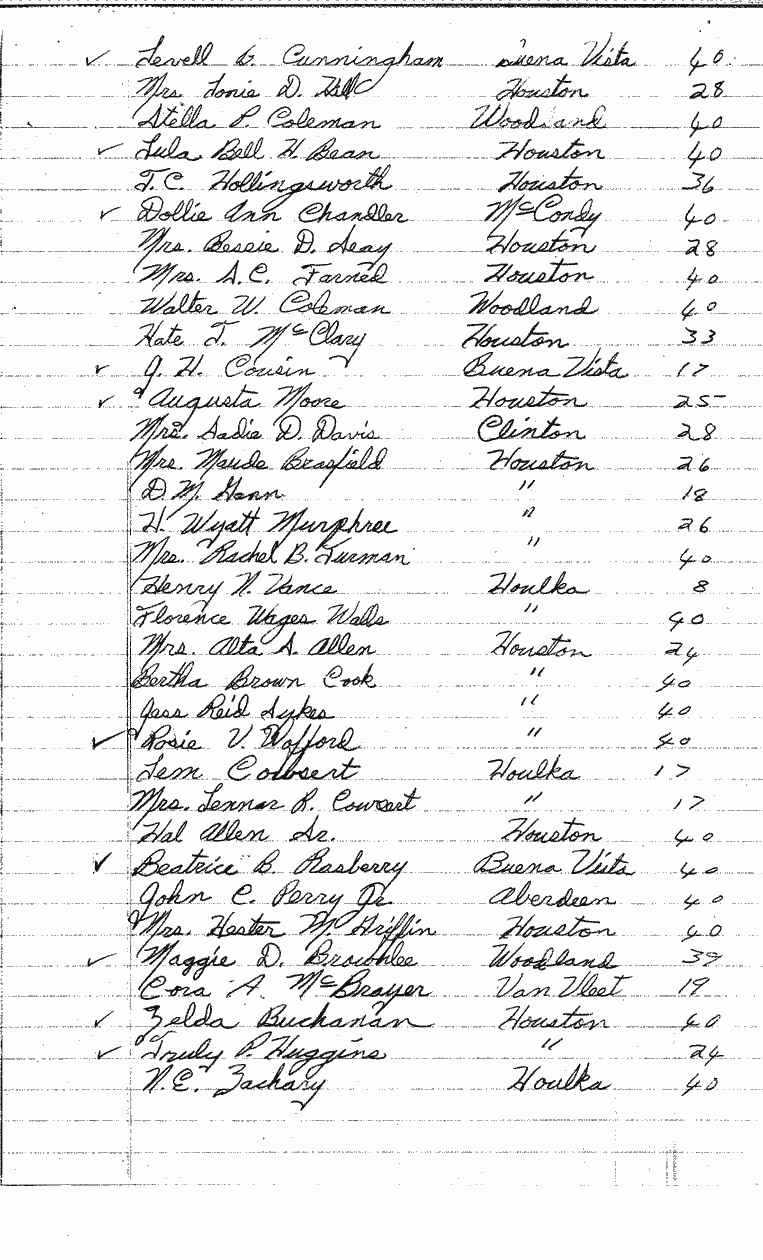 ✓ Levell G. Cunningham Buena Vista 40
Mrs. Tonie D. Hill Houston 28
Stella P. Coleman Woodland 40
✓ Lula Bell H. Bean Houston 40
T.C. Hollingsworth Houston 36
✓ Dollie Ann Chandler McCondy 40
Mrs. Bessie D. Seay Houston 28
Mrs. A.C. Farned Houston 40
Walter W. Coleman Woodland 40
Kate T. McClary Houston 33
✓ J. H. Cousin Buena Vista 17
✓ Augusta Moore Houston 25
Mrs. Sadie D. Davis Clinton 28
Mrs. Maude Brasfield Houston 26
D.M. Gann " 18
H. Wyatt Murphree " 26
Mrs. Rachel B. Furman " 40
Henry N. Vance Houlka 8
Florence Wages Walls " 40
Mrs. Alta S. Allen Houston 24
Bertha Brown Cook " 40
Jass Reid Sykes " 40
✓ Rosie V. Wofford " 40
Lem Cowsert Houlka 17
Mrs. Lennar R. Cowsert " 17
Hal Allen Sr. Houston 40
✓ Beatrice B. Rasberry Buena Vista 40
John C. Perry Jr. Aberdeen 40
Mrs. Hester M. Griffin Houston 40
✓ Maggie D. Brownlee Woodland 39
Cora A. McBrayer Van Vleet 19
✓ Zelda Buchanan Houston 40
✓ Truly P. Huggins " 24
N.E. Zachary Houlka 40